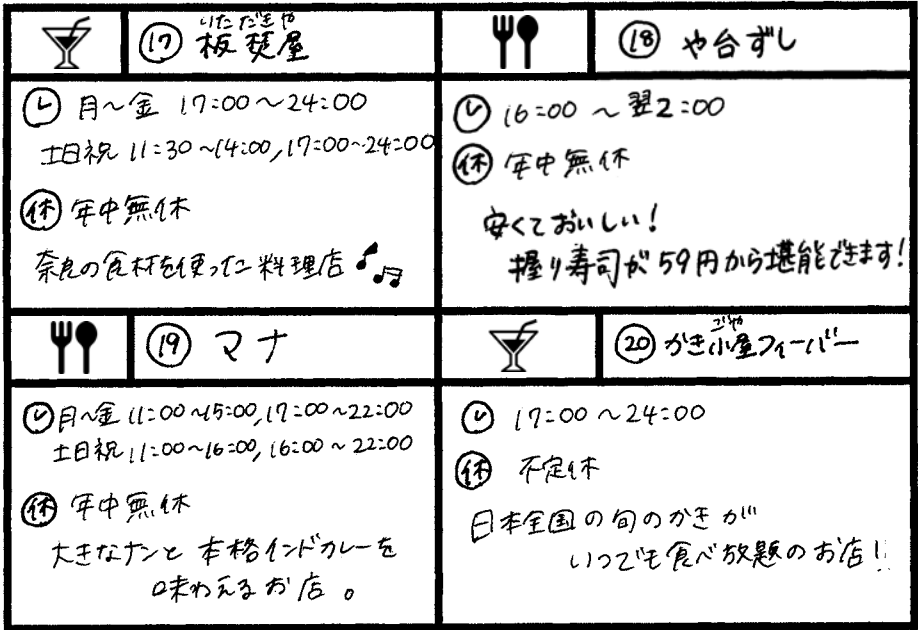 いただきや
⑰ 板焚屋
月〜金 17:00〜24:00
土日祝 11:30〜14:00,17:00〜24:00
休 年中無休
奈良の食材を使った料理店
⑱ や台ずし
16:00 〜翌2:00
休 年中無休
安くておいしい!
握り寿司が59円から堪能できます!
⑲ マナ
月〜金 11:00〜15:00,17:00〜22:00
土日祝 11:00〜16:00,16:00〜22:00
休 年中無休
大きなナンと本格インドカレーを
味わえるお店。
ごや
⑳ かき小屋フィーバー
17:00 〜24:00
休 不定休
日本全国の旬のかきが
いつでも食べ放題のお店!!